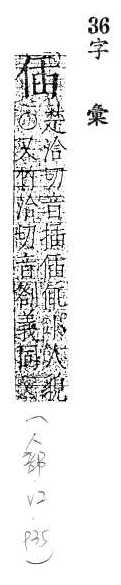 36字彙
偛
楚洽切音插偛小人貌
又竹洽切音劄義同
(人部 v2 p35)